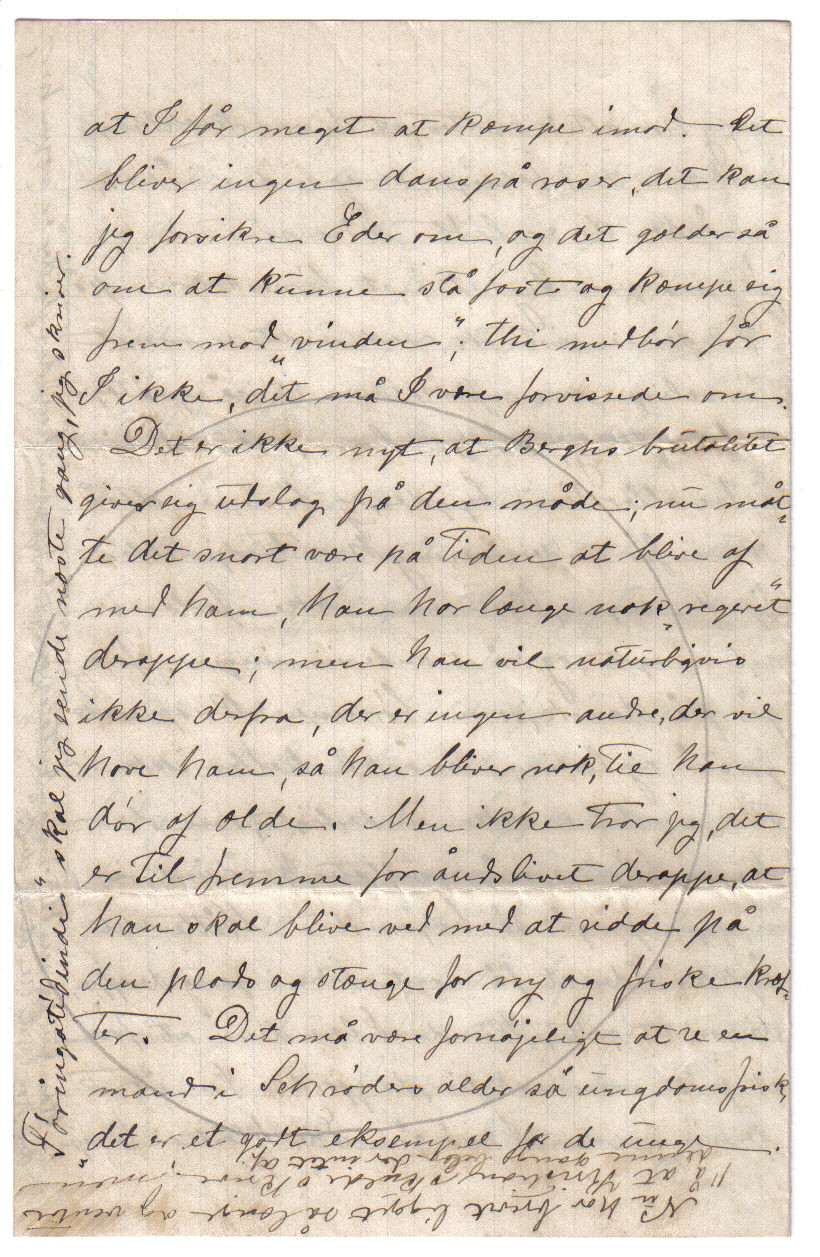 at I får meget at kæmpe imod. Det
bliver ingen dans på roser, det kan
jeg forsikre Eder om, og det gælder så
om at kunne stå fast og kæmpe sig
frem mod „vinden“; thi medbør får
I ikke, det må I være forvissede om.
Det er ikke nyt, at Berghs brutalitet
giver sig udslag på den måde; nu måt-
te det snart være på Tiden at blive af
med ham, han har længe nok „regeret“
deroppe; men han vil naturligvis
ikke derfra, der er ingen andre, der vil
have ham, så han bliver nok, til han
dør af ælde. Men ikke tror jeg, det
er til fremme for åndslivet deroppe, at
han skal blive ved med at sidde på
den plads og stænge for ny og friske kræf-
ter. Det må være fornøjeligt at se en
mand i Schrøders alder så ungdomsfrisk,
det er et godt eksempel for de unge.
„Føringatíðindi“ skal jeg sende næste gang, jeg skriver.
Nu har brevet ligget så længe og ventet
på at skulde skrive, men
denne gang bliver der intet af.